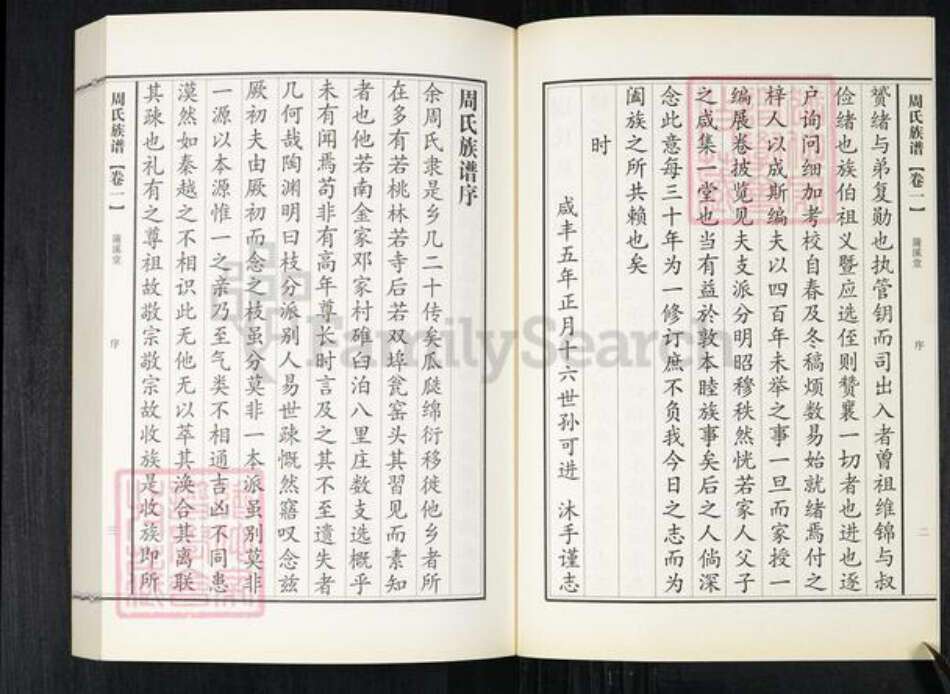 周氏族谱【卷一】
蒲溪堂
序
二
赟绪与弟复勋也执管钥而司出入者曾祖维锦与叔
俭绪也族伯祖义暨应选侄则赞襄一切者也进也逐
户询问细加考校自春及冬稿烦数易始就绪焉付之
梓人以成斯编夫以四百年未举之事一旦而家授一
编展卷披览见夫支派分明昭穆秩然恍若家人父子
之咸集一堂也当有益於敦本睦族事矣后之人倘深
念此意每三十年为一修订庶不负我今日之志而为
阖族之所共赖也矣
时
咸丰五年正月十六世孙可进 沐手谨志
周氏族谱序
余周氏隶是乡几二十传矣瓜瓞绵衍移徙他乡者所
在多有若桃林若寺后若双埠瓮窑头其習见而素知
者也他若南金家邓家村碓臼泊八里庄数支选概乎
未有闻焉苟非有高年尊长时言及之其不至遗失者
几何哉陶渊明曰枝分派别人易世疎慨然寤叹念兹
厥初夫由厥初而念之枝虽分莫非一本派虽别莫非
一源以本源惟一之亲乃至气类不相通吉凶不同患
漠然如秦越之不相识此无他无以萃其涣合其离联
其疎也礼有之尊祖故敬宗敬宗故收族是收族即所
周氏族谱【卷一】
蒲溪堂
序
三
FamilySearch